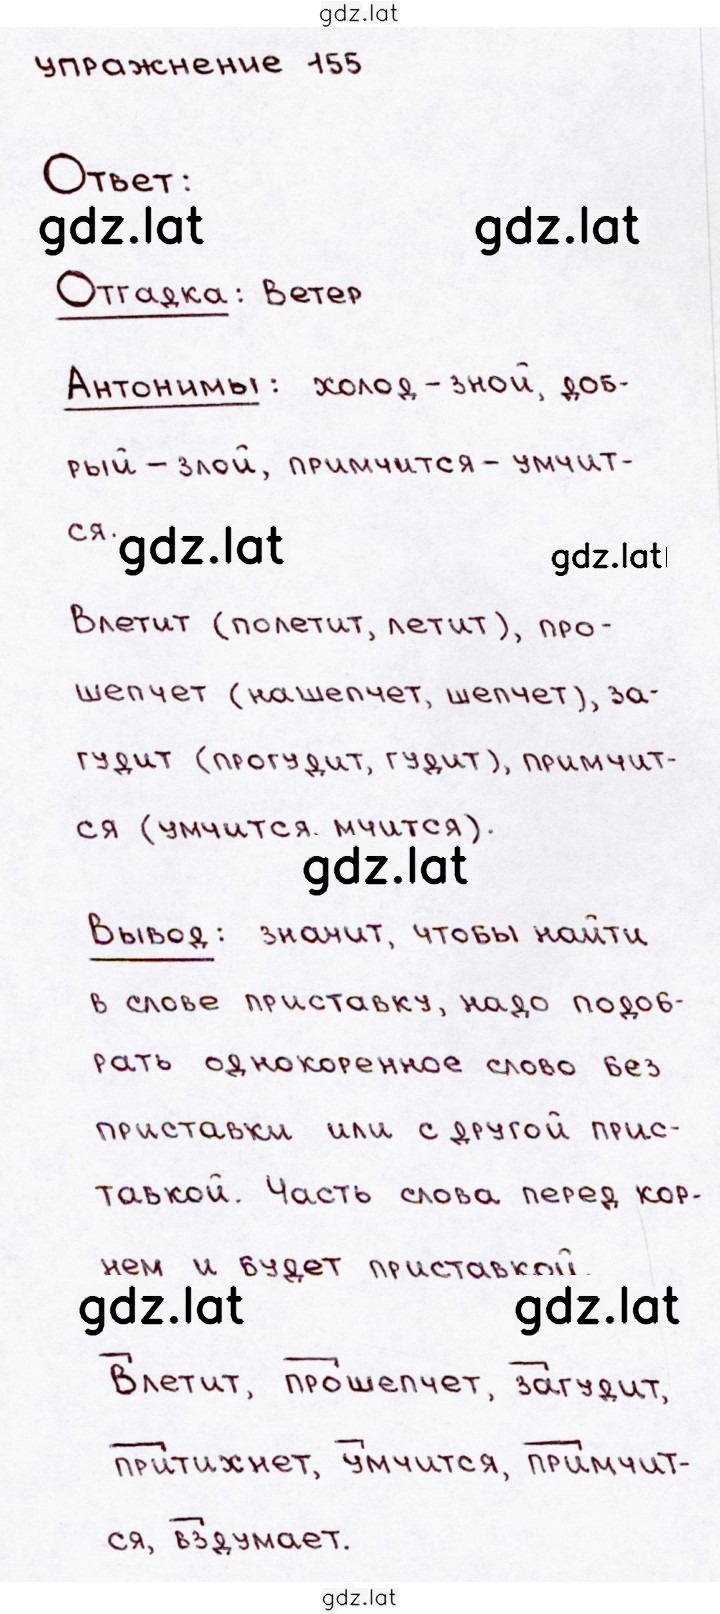 gdz.lat
упражнение 155
Ответ:
gdz.lat gdz.lat
Отгадка: Ветер
Антонимы: холод – зной, доб-
рый – злой, примчится – умчит-
ся.
gdz.lat gdz.lat
Влетит (полетит, летит), про-
шепчет (нашепчет, шепчет), за-
гудит (прогудит, гудит), примчит-
ся (умчится. мчится).
gdz.lat
Вывод: значит, чтобы найти
в слове приставку, надо подоб-
рать однокоренное слово без
приставки или с другой прис-
тавкой. Часть слова перед кор-
нем и будет приставкой.
gdz.lat gdz.lat
Влетит, прошепчет, загудит,
притихнет, умчится, примчит-
ся, вздумает.
gdz.lat